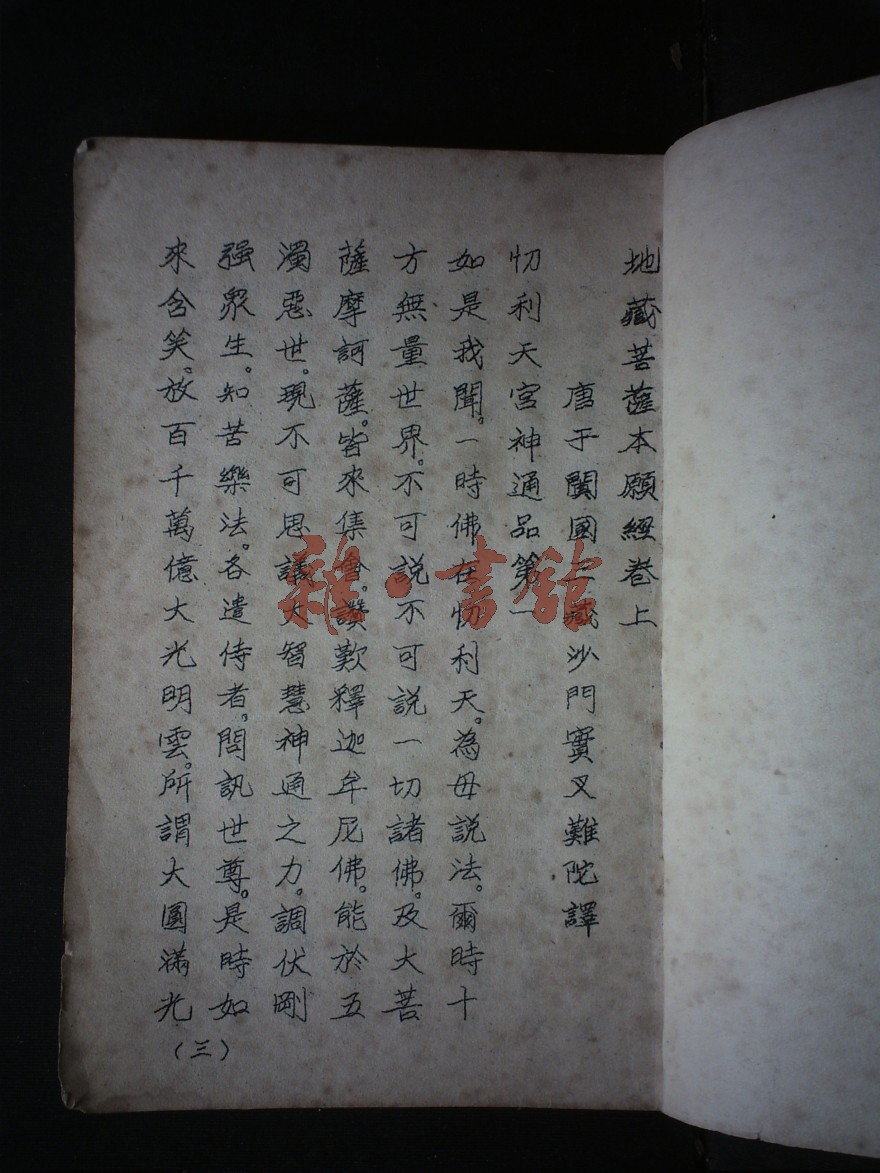 地藏菩薩本願經卷上
唐于闐國三藏沙門實叉難陀譯
忉利天宮神通品第一
如是我聞。一時佛在忉利天。為母說法。爾時十
方無量世界。不可說不可說一切諸佛。及大菩
薩摩訶薩。皆來集會。讚歎釋迦牟尼佛。能於五
濁惡世。現不可思議大智慧神通之力。調伏剛
强眾生。知苦樂法。各遣侍者。問訊世尊。是時如
來含笑。放百千萬億大光明雲。所謂大圓滿光
（三）
雜·書館